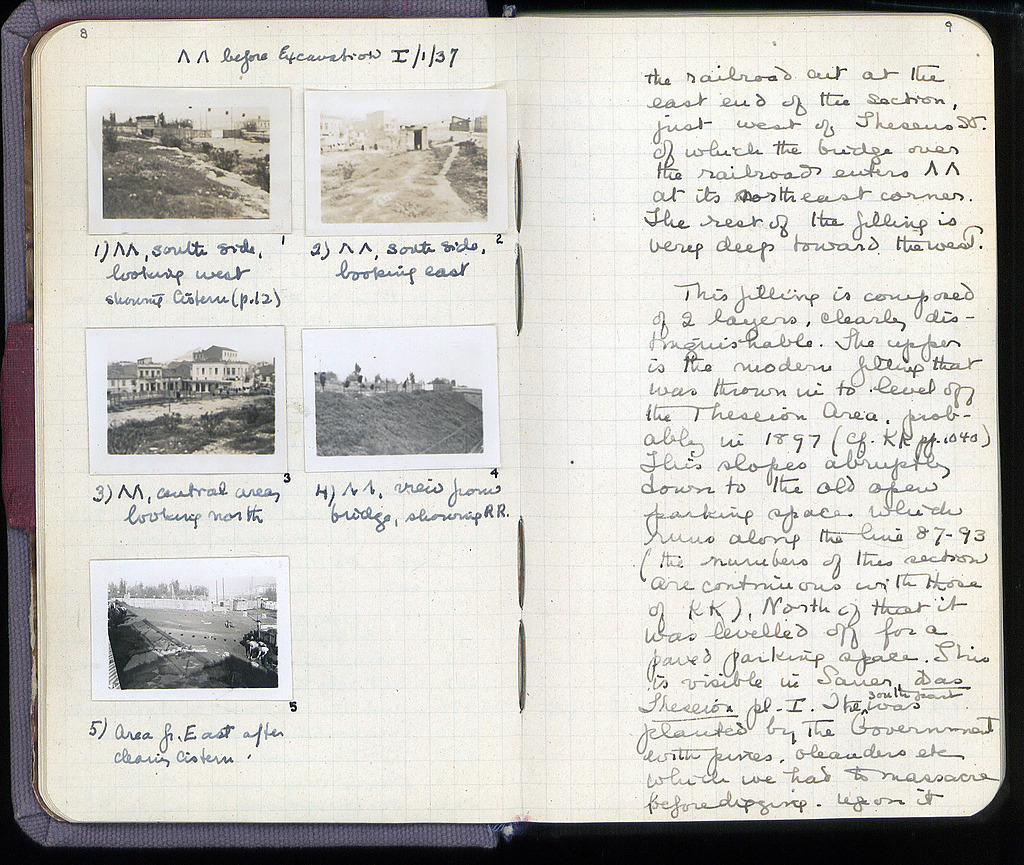 8
ΛΛ before Excavation I/1/37
1
2
1) ΛΛ, south side,
looking west
showing Cistern (p.12)
2) ΛΛ, south side,
looking east
3
4
3) ΛΛ, central area,
looking north
4) ΛΛ, view from
bridge, showing RR.
5
5) Area fr. East after
clearing Cistern.
9
the railroad cut at the
east end of the section,
just west of Theseus St.
of which the bridge over
the railroad enters ΛΛ
at its northeast corner.
The rest of the filling is
very deep toward the west.
This filling is composed
of 2 layers, clearly dis-
tinguishable. The upper
is the modern filling that
was thrown in to level off
the Theseion Area, prob-
ably in 1897 (cf. KK pp. 1040)
This slopes abruptly
down to the old open
parking space which
runs along the line 87-93
(the numbers of this section
are continuous with those
of KK), North of that it
was levelled off for a
paved parking space. This
is visible in Sauer, Das
Theseion pl. I. The south part was
planted by the Government
with pines, oleanders etc
which we had to massacre
before digging. Upon it